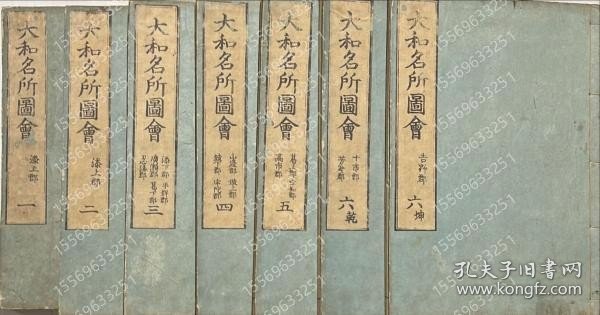 大和名所圖會
添上郡
一
大和名所圖會
添上郡
二
大和名所圖會
添下郡 平群郡
廣瀬郡 葛下郡
忍海郡
三
大和名所圖會
山邊郡 城上郡
城下郡 宇陀郡
四
大和名所圖會
葛上郡 宇智郡
高市郡
五
大和名所圖會
十市郡
芳野郡
六乾
大和名所圖會
吉野郡
六坤
15569633251
孔夫子旧书网
www.kongfz.com